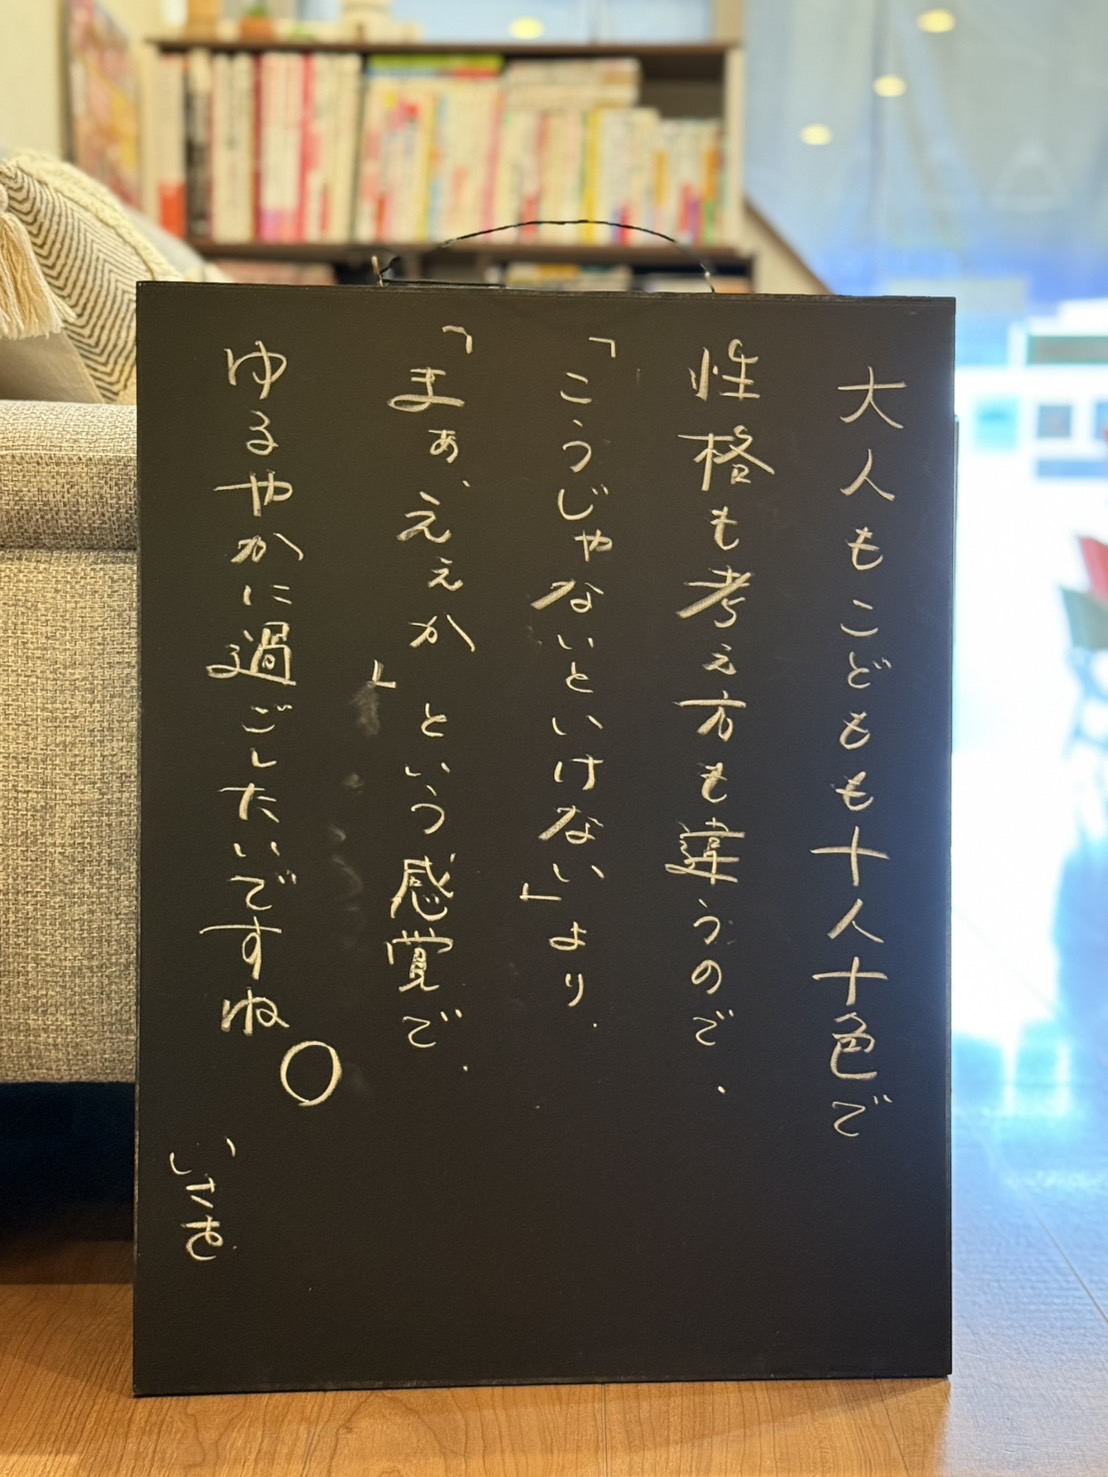 大人もこどもも十人十色で
性格も考え方も違うので、
「こうじゃないといけない」より、
「まぁ、えぇか」という感覚で、
ゆるやかに過ごしたいですね○
いさを